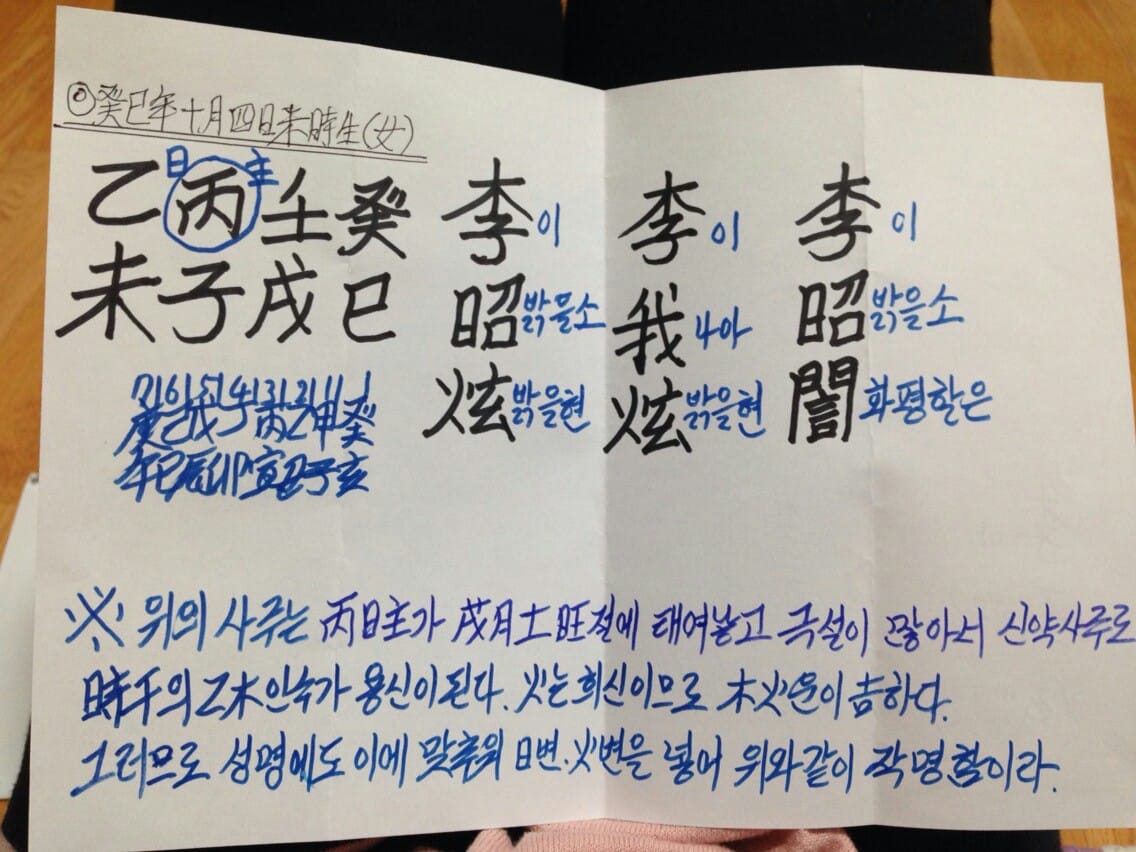 ◎癸巳年十月四日未時生(女)
日 主
乙丙壬癸
未子戌巳
71 61 51 41 31 21 11 1
庚己戊丁丙乙甲癸
午巳辰卯寅丑子亥
李 이
昭 밝을소
炫 밝을현
李 이
我 나아
炫 밝을현
李 이
昭 밝을소
誾 화평할은
※ 위의 사주는 丙日主가 戌月土旺절에 태여낳고 극설이 많아서 신약사주로
時干의 乙木인수가 용신이 된다. 火는 희신이므로 木火운이 吉하다.
그러므로 성명에도 이에 맞추워 日변.火변을 넣어 위와같이 작명함이라.